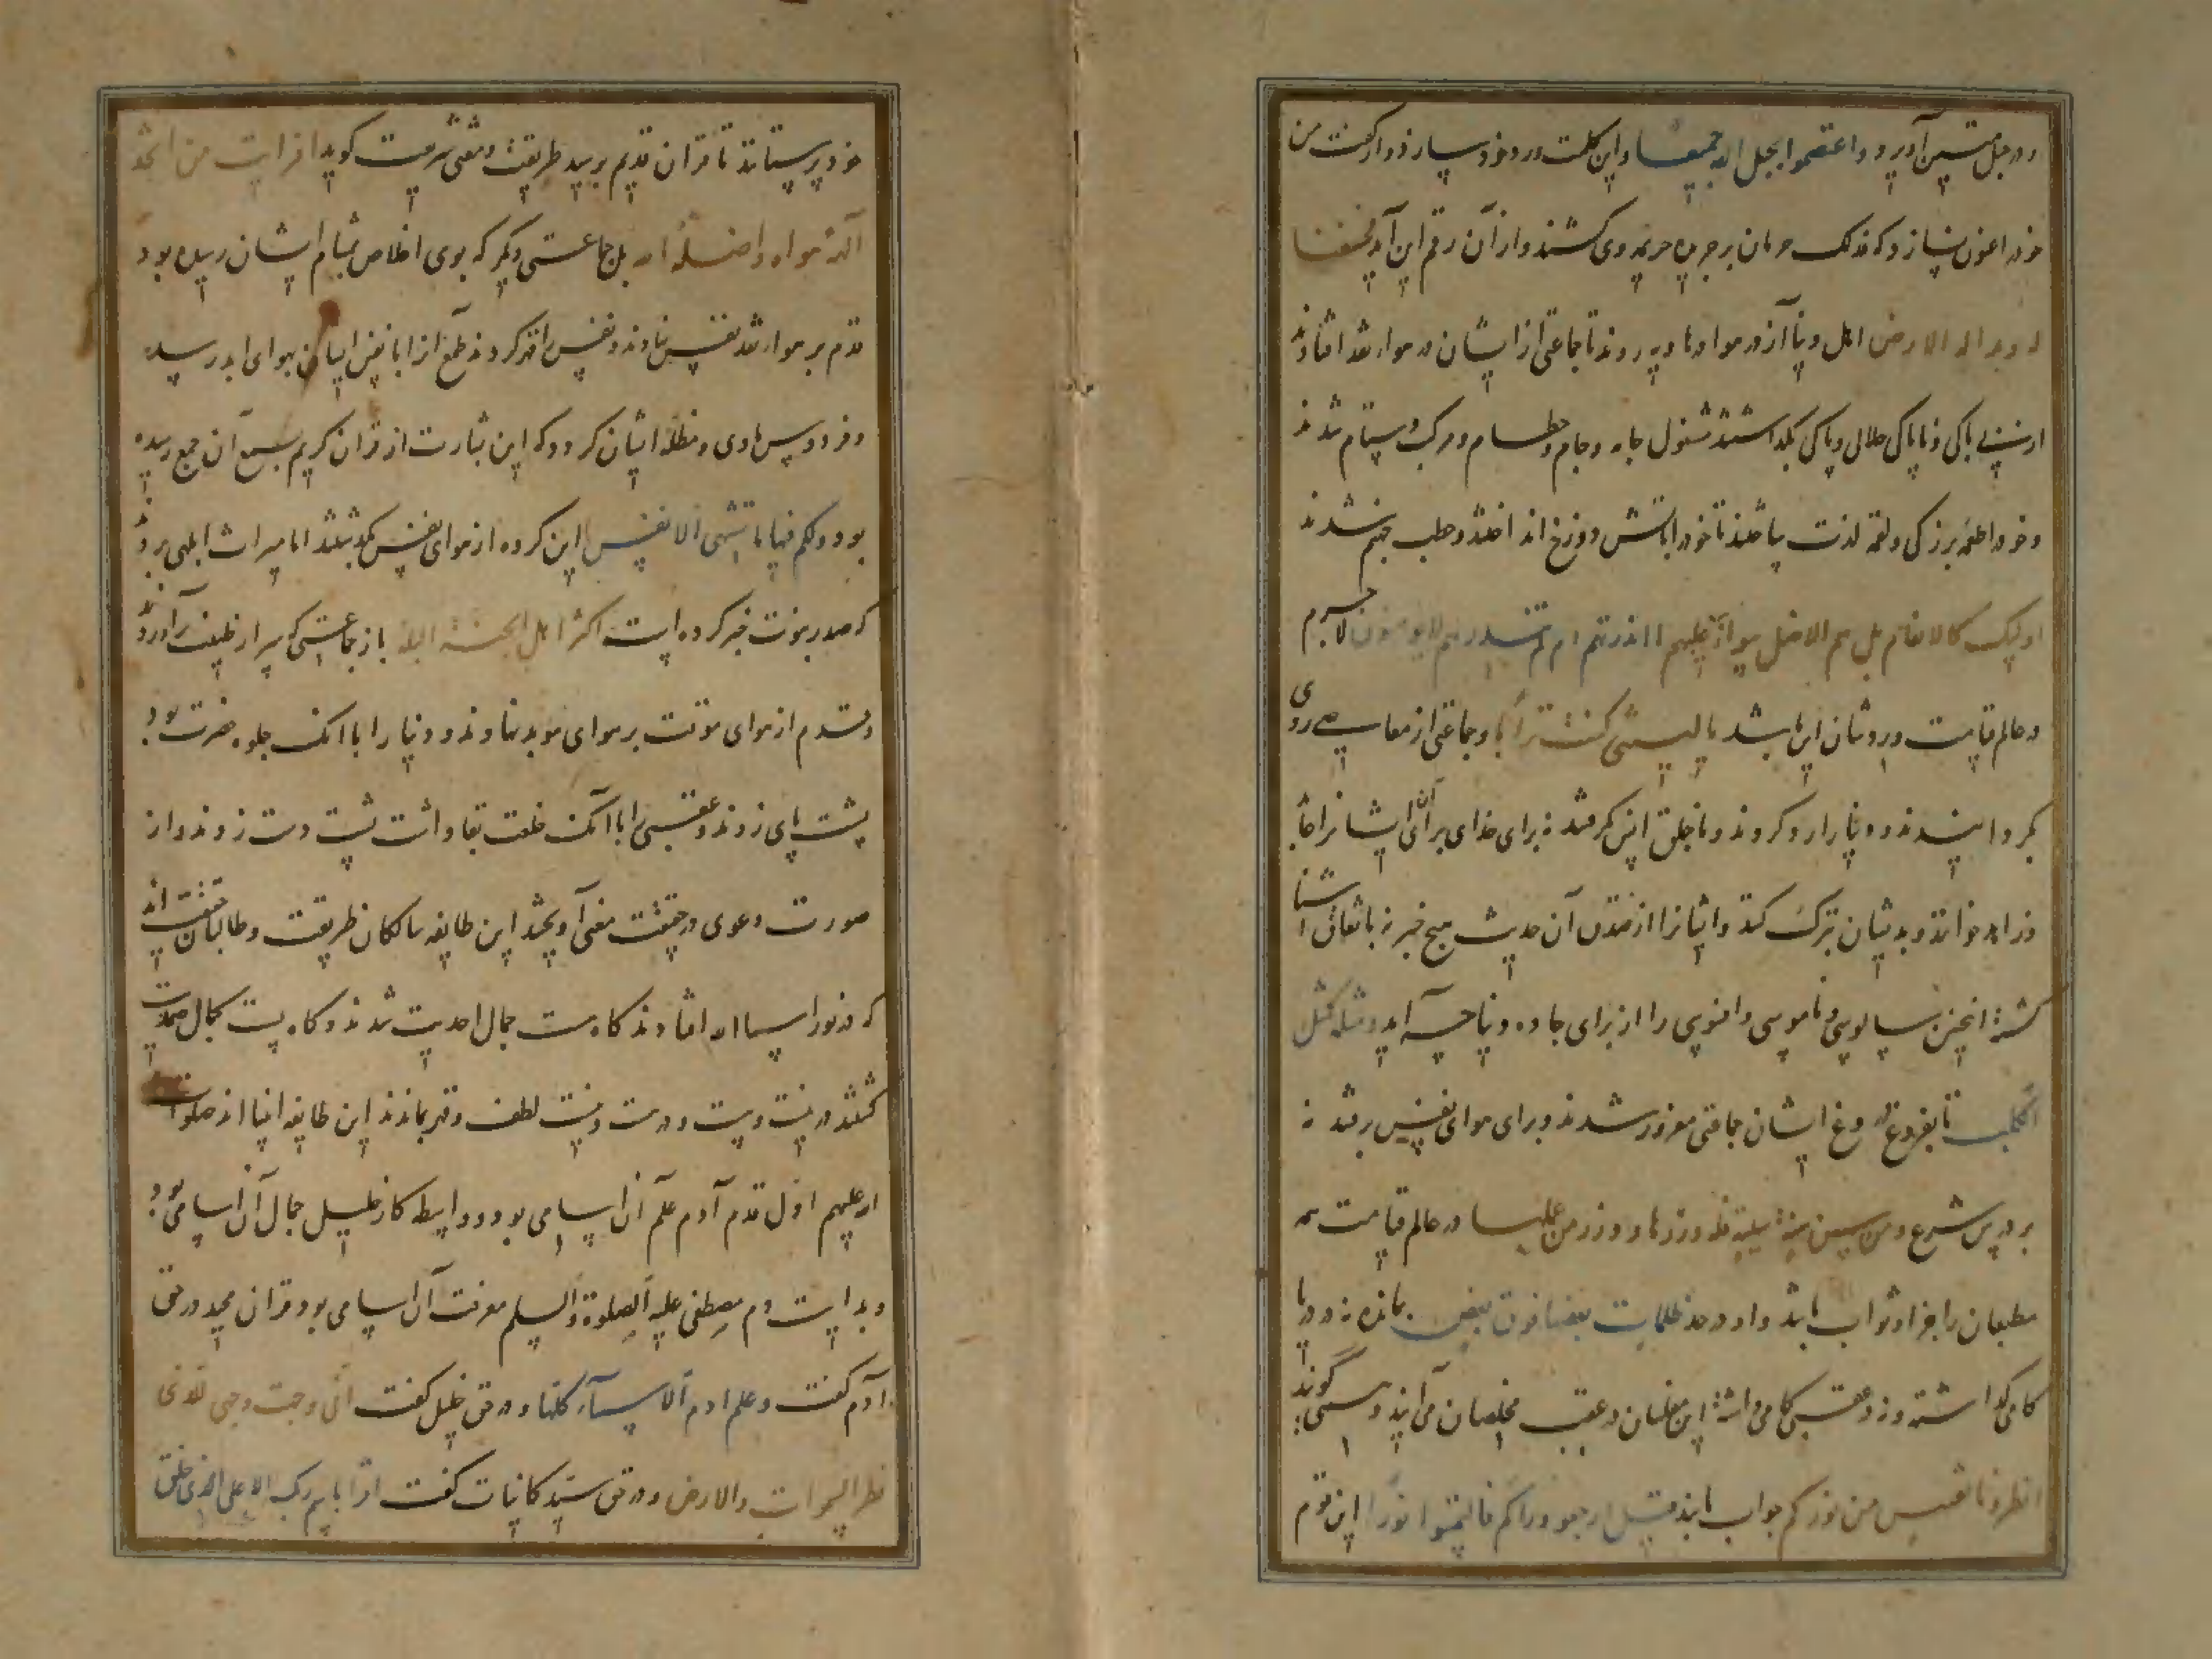 و در حبل متین آویزد و اعتصموا بحبل الله جمیعا و این کلمت ورد خود سازد و از گفت من
خود را عون سازد که فذلک حرمان بر جریده جریمه وی کشند و از آن رقم این آید فخسفنا
به و بداره الارض اهل دنیا آز در هوا و هاویه روند تا جماعتی از ایشان در هوا رفتند افتادند
از بی باکی و ناپاکی حلالی و پاکی بگذاشتند مشغول جامه و جام و حطام و مرکب و ستام شدند
و خود را طعمه بزرگی و لقمه لذت ساختند تا خود را باتش دوزخ انداختند و حطب جهنم شدند
اولیک کالانعام بل هم الاضل سواء علیهم ا انذرتهم ام لم تنذرهم لا یومنون لاجرم
در عالم قیامت ورد شان این باشد یا لیتنی کنت ترابا و جماعتی از معاصی روی
بگردانیدند و دنیا را رد کردند و با خلق انس گرفتند نه برای خدای برای آن ایشانرا عابد
و زاهد خوانند و بدیشان تبرک کنند و ایشانرا از صدق آن حدیث هیچ خبر نه با نفاق آشنا
گشته انچنین سالوسی و ناموسی و افسوسی را از برای جاه و دنیا چه آید فمثله کمثل
الکلب تا بفروغ دروغ ایشان جماعتی مغرور شدند و برای هوای نفس رفتند نه
بر درس شرع و من سن سنة سیئة فله وزرها و وزر من عمل بها در عالم قیامت همه
مطیعان را جزا و ثواب باشد و او در حد ظلمات بعضها فوق بعض بمانده نه در دنیا
کامی گذاشته و نه در عقبی کامی داشته این مفلسان در عقب مخلصان می آیند و می گویند
انظرونا نقتبس من نورکم جواب یابند قیل ارجعوا وراکم فالتمسوا نورا این قوم
خود پرستانند تا قران قدیم بر سید طریقت و مفتی شریعت گوید افرایت من اتخذ
الهه هواه و اضله الله بل جماعتی دیگر که بوی اخلاص بمشام ایشان رسیده بود
قدم بر هوا رفتند نفس نهادند و نفس را قهر کردند طمع از ابا نفس ایشان بهوای ابد رسیده
و فردوس ماوی و مظله ایشان کرد و که این بشارت از قران کریم بسمع آن جمع رسیده
بود و لکم فیها ما تشتهی الانفس این گروه از هوای نفس گذشتند اما میراث ابلهی بردند
که صدر نبوت خبر کرده است اکثر اهل الجنة البله باز جماعتی که سر از طبیعت برآوردند
و قدم از هوای موقت بر هوای موبد نهادند و دنیا را با آنک جلوه خضرت بود
پشت پای زدند و عقبی را با آنک خلعت بقا داشت پشت دست زدند و از
صورت دعوی در حقیقت معنی آویختند این طایفه سالکان طریقت و طالبان حقیقت اند
که در نور اسما الله افتادند گاه مست جمال احدیت شدند و گاه پست کمال صمدیت
گشتند در نیست و هست و درست و نیست لطف و قهر بماندند این طایفه انبیا اند صلوات
الله علیهم اول قدم آدم علم آن اسامی بود و واسطه کار خلیل جمال آن اسامی بود
و بدایت دم مصطفی علیه الصلوة و السلم معرفت آن اسامی بود قران مجید در حق
آدم گفت و علم ادم الاسماء کلها و در حق خلیل گفت انی وجهت وجهی للذی
فطر السموات و الارض و در حق سید کاینات گفت اقرا باسم ربک الاعلی الذی خلق